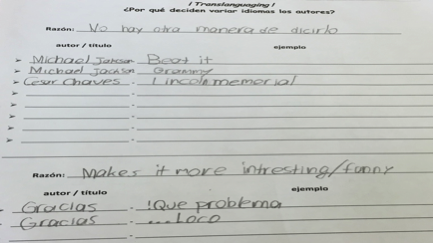 ¡Translanguaging!
¿Por qué deciden variar idiomas los autores?
Razón: No hay otra manera de dicirlo
autor / título ejemplo
➢ Michael Jackson - Beat it
➢ Michael Jackson - Grammy
➢ Cesar Chaves - Lincoln memorial
➢ -
➢ -
➢ -
➢ -
Razón: Makes it more intresting/funny
autor / título ejemplo
Gracias - !Que problema
Gracias - ...Loco